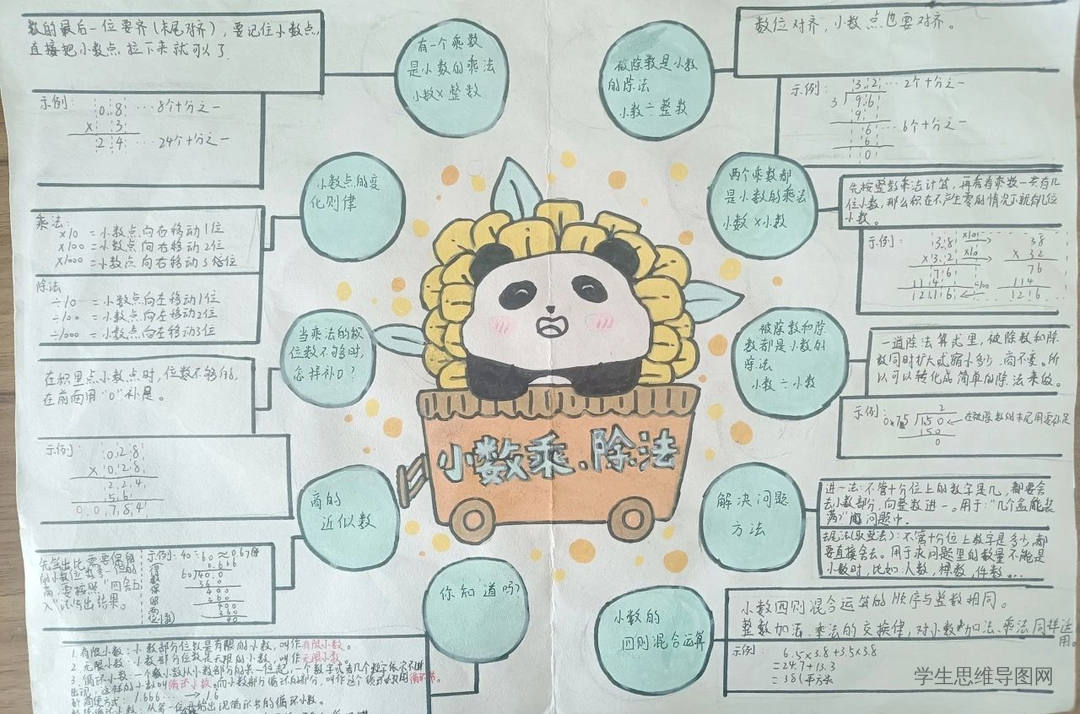 数的最后一位要齐(末尾对齐),要记住小数点,
直接把小数点拉下来就可以了
示例:
0.8 …8个十分之一
× 3
2.4 …24个十分之一
有一个乘数
是小数的乘法
小数×整数
小数点的变
化规律
乘法:
×10 =小数点向右移动1位
×100 =小数点向右移动2位
×1000 =小数点向右移动3位
除法
÷10 =小数点向左移动1位
÷100 =小数点向左移动2位
÷1000 =小数点向左移动3位
当乘法的数
位数不够时,
怎样补0?
在积里点小数点时,位数不够的,
在前面用“0”补足。
示例:
0.28
× 0.28
2 2 4
5 6
0.0784
商的
近似数
先算出比需要保留
的小数位数多一位的
商,要按照“四舍五
入”法写出结果。
示例:40÷60≈0.67
得数保留两位小数
你知道吗?
1.有限小数:小数部分位数是有限的小数,叫作有限小数。
2.无限小数:小数部分位数是无限的小数,叫作无限小数。
3.循环小数:一个数小数从小数部分的某一位起,一个数字或者几个数字依次
出现,这样的小数叫循环小数。
小数乘、除法
被除数是小数
的除法
小数÷整数
数位对齐,小数点也要对齐。
示例:
3.2 …2个十分之一
3 9.6
9
6 …6个十分之一
6
0
两个乘数都
是小数的乘法
小数×小数
先按整数乘法计算,再看看乘数一共有几
位小数,那么积在不产生零的情况下就有几位
小数。
示例:
3.8 ×10 38
× 3.2 ×10 × 32
7 6 76
11 4 114
12.16 ÷100 1216
被除数和除
数都是小数的
除法
小数÷小数
一道除法算式里,被除数和除
数同时扩大或缩小多少,商不变。所
以可以转化成简单的除法来做。
示例:
2
0.75 150
150
0
解决问题
方法
进一法:不管十分位上的数字是几,都要舍
去小数部分,向整数进一。用于:“几个盒能装
满?”的问题中。
去尾法:不管十分位上数字是多少,都
要直接舍去。用于求问题里的数量不能是
小数时,比如人数,棵数,件数…
小数的
四则混合运算
小数四则混合运算的顺序与整数相同。
整数加法、乘法的交换律,对小数加法、乘法同样适
用。
示例:
6.5×3.8+3.5×3.8
=24.7+13.3
=38(平方米)
学生思维导图网.